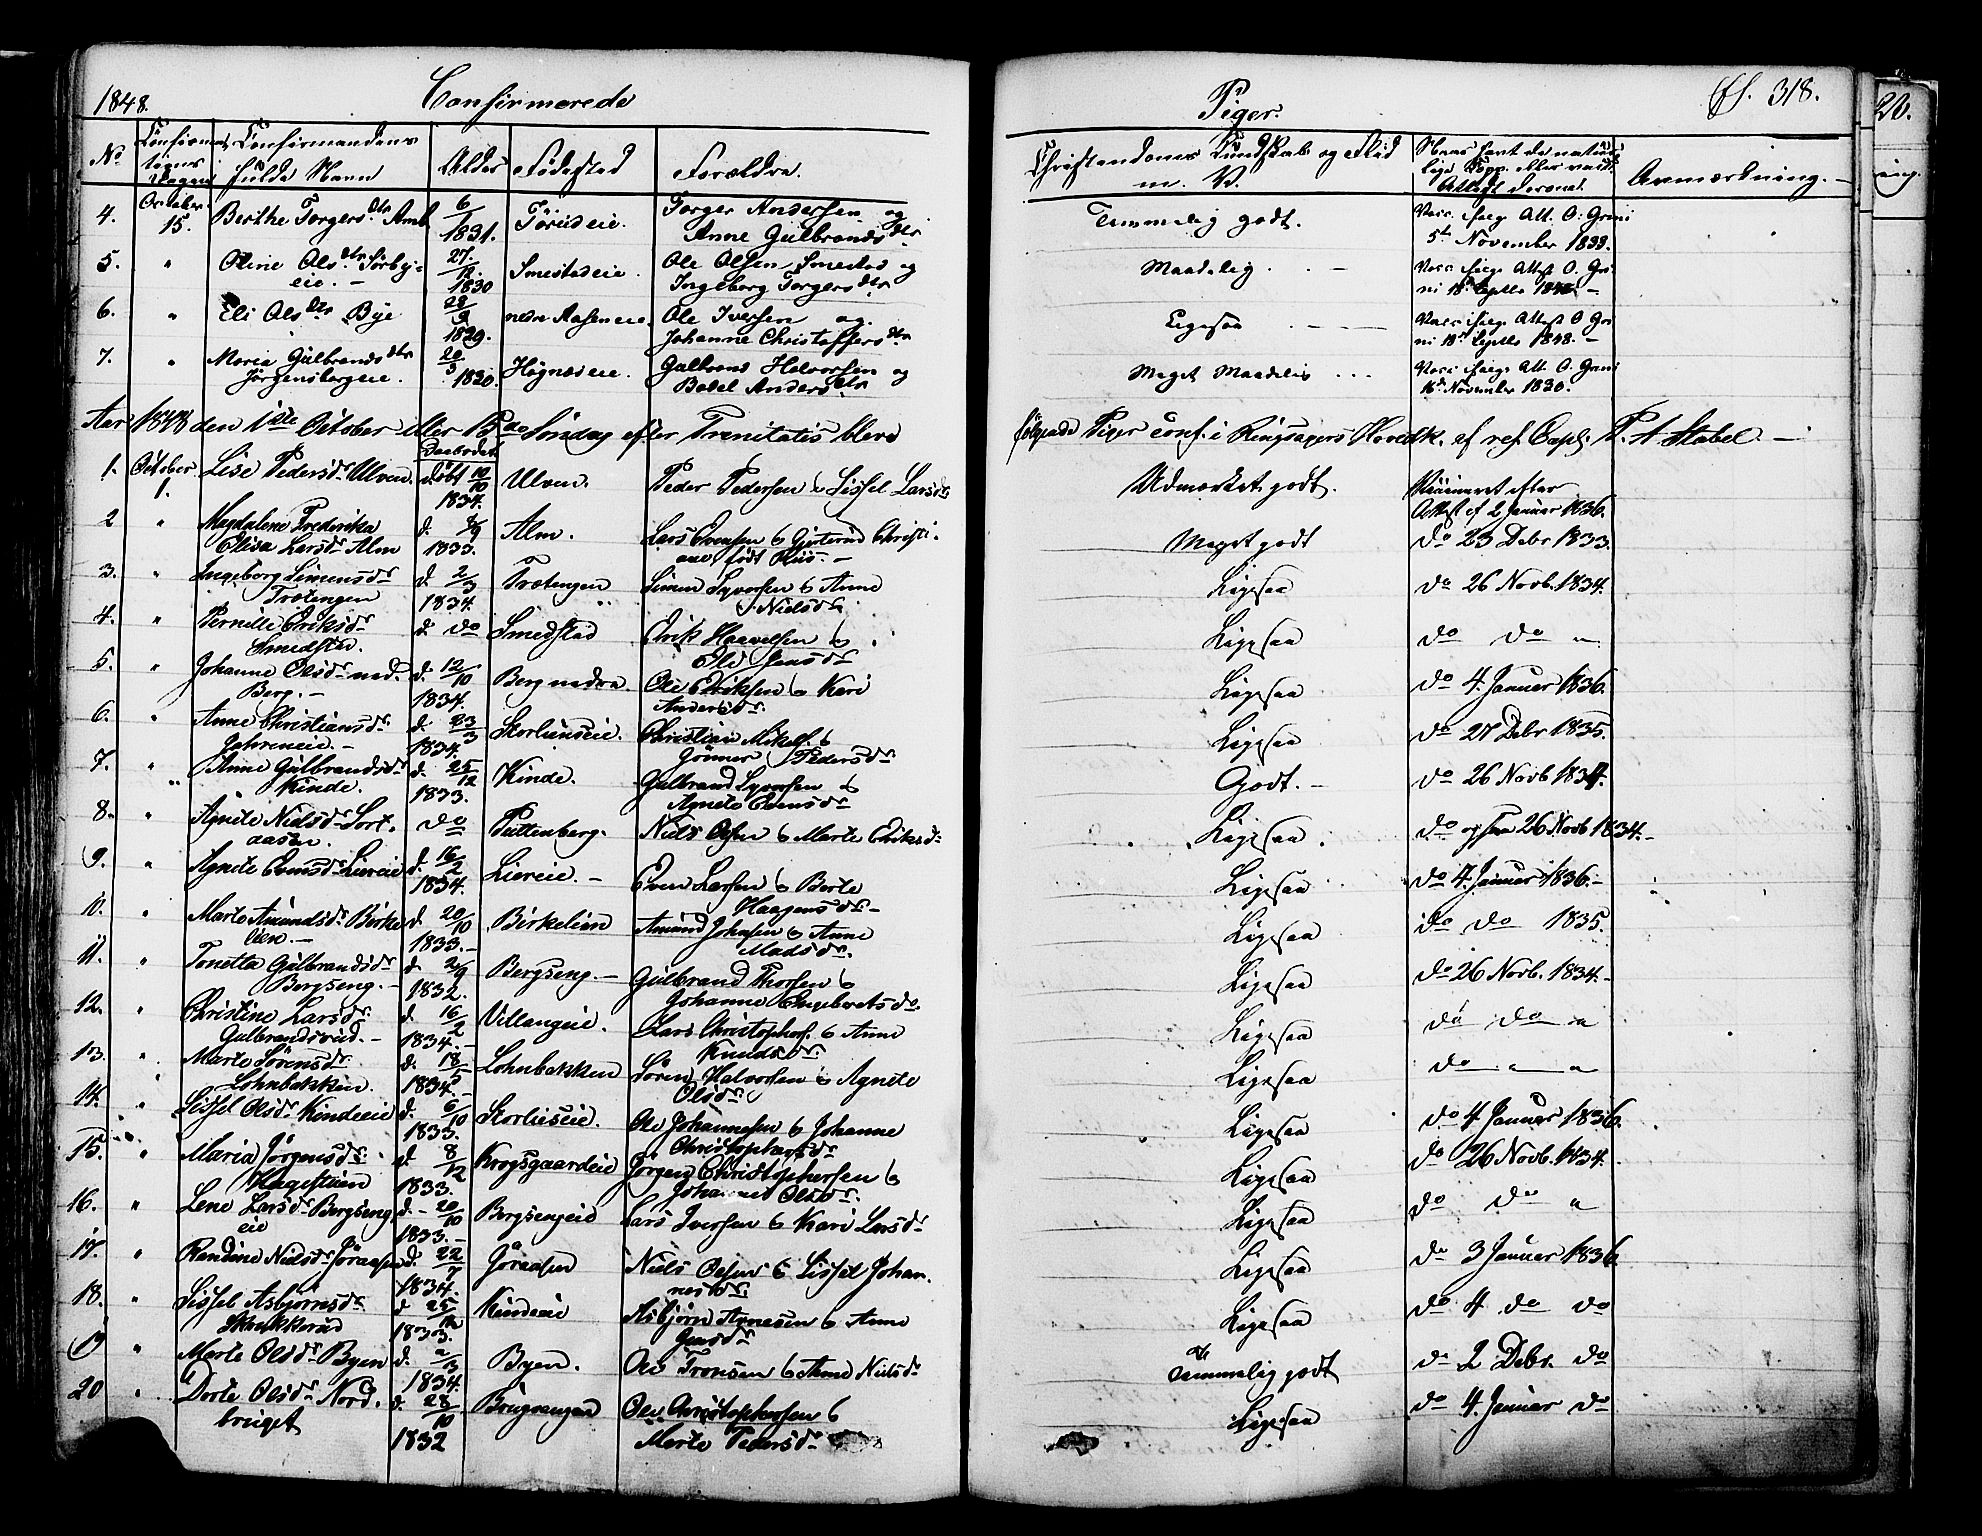 1848.
Confirmerede
Piger.
Fol. 318.
No
Confirma-
tions
Dagen
Confirmandens
fulde Navn
Alder
Fødested
Forældre.
Christendoms Kundskab og Flid
m. V.
Naar havt de natur-
lige Kopp. eller vacc.
Attest derom.
Anmærkning.
4.
October
15.
Berthe Torgersdtr Amb
6/1 1831.
Tørudeie.
Torger Andersen og
Anne Gulbrandsdtr
Temmelig godt.
Vacc. ifølge Att. O. Grøni
5te November 1833.
5.
"
Oline Olsdtr Sørby-
eie. -
27/12 1830
Smestadeie.
Ole Olsen Smestad og
Ingeborg Torgersdtr
Maadelig
Vacc. ifølge Attest O. Grø-
ni 18 Septbr 1848. -
6.
"
Eli Olsdtr Bye
28/9 1829.
nedre Aaseneie.
Ole Iversen og
Johanne Christoffersdtr
Ligesaa
Vacc. ifølge Attest O. Grø-
ni 18 Septbr 1848. -
7.
"
Marie Gulbrandsdtr
Jørgensbergeie.
20/3 1830.
Høgnæseie.
Gulbrand Halvorsen og
Bodel Andersdtr
Meget Maadelig
Vacc. ifølge Att. O. Grøni
16de November 1830.
Aar 1848 den 1ste October eller 15de Søndag efter Trenitatis bleve
følgende Piger conf. i Ringsagers Hovedk. af ref. Capl. P. A. Stabel. -
1.
October
1.
Lise Pedersdr Ulven.
Døbt 10/10 1834.
Ulven.
Peder Pedersen & Sissel Larsdr
Udmærket godt.
Vaccineret efter
Attest af 2 Januar 1836.
2
"
Magdalene Frederika
Elisa Larsdr Alm
1833.
Alm.
Lars Evensen & Gjertrud Christi-
ane født
Meget godt
do 23 Debr 1833.
3.
"
Ingeborg Simensdr
Trætengen
d. 2/3 1834.
Trætengen
Simen Syversen & Anne
Nielsdr
Ligesaa
do 26 Novb. 1834.
4.
"
Pernille Eriksdr
Smedstad.
d. do
Smedstad
Erik Haavelsen &
Ligesaa
do do "
5.
"
Johanne Olsdr ned.
Berg. -
d. 12/10 1834.
Berg nedre.
Ole Eriksen & Kari
Andersdr.
Ligesaa
do 4. Januar 1836.
6.
"
Anne Christiansdr
Jahreneie. -
d. 23/3 1834.
Skorlienseie.
Christian Mikels. &
Gønner Pedersdr
Ligesaa
do 27 Debr 1835.
7.
"
Anne Gulbrandsdr
Kinde.
d. 25/12 1833.
Kinde.
Gulbrand Syversen &
Agnete Evensdr
Godt. -
do 26 Novb 1834.
8.
"
Agnete Nielsdr Sort-
aasen.
do
Puttenberg.
Niels Olsen & Marte Eriksdr
Ligesaa.
do ogsaa 26 Novb 1834. -
9.
"
Agnete Evensdr Liereie
d. 16/2 1834.
Liereie. -
Even Larsen & Berte
Haagensdr -
Ligesaa
do 4. Januar 1836. -
10.
"
Marte Amundsdr Birke-
lien. -
d. 20/10 1833. -
Birkelien
Amund Johnsen & Anne
Madsdr.
Ligesaa
do do 1835.
11.
"
Tonetta Gulbrandsdr
Bergseng. -
d. 2/9 1832.
Bergseng. -
Gulbrand Thorsen &
Johanne Engebretsdr
Ligesaa
do 26 Novb. 1834. -
12.
"
Christine Larsdr
Gulbrandsrud. -
d. 16/2 1834. -
Villangeie.
Lars Christophers. & Anne
Knudsdr.
Ligesaa
do do "
13.
"
Marte Sørensdr
Lohnbækken.
d. 18/5 1834. -
Lohnbækken
Søren Halvorsen & Agnete
Olsdr
Ligesaa
do " "
14.
"
Sissel Olsdr Kindeeie
d. 6/10 1833.
Skorlieseie.
Ole Johannesen & Johanne
Christophersdr
Ligesaa
do 4 Januar 1836.
15.
"
Maria Jørgensdr
Hagestuen
d. 8/12 1833.
Krogsgaardeie
Jørgen Christophersen &
Johanne Olsdr.
Ligesaa
do 26 Novb. 1834.
16.
"
Lene Larsdr Bergseng-
eie
d. 20/10 1833. -
Bergsengeie
Lars Iversen & Kari Larsdr
Ligesaa
do do "
17.
"
Randine Nielsdr Jøraasen
d. 22/7 1834.
Jøraasen
Niels Olsen & Sissel Johan-
nesdr.
Ligesaa
do 3 Januar 1836
18.
"
Sissel Asbjørnsdr
Skakkerud
d. 25/12 1833.
Kindeeie
Asbjørn Arnesen & Anne
Jensdr
Ligesaa
do 4 do do
19
"
Marte Olsdr Byen
1834.
Byen.
Ole Tronsen & Anne Nielsdr
Temmelig godt
do 2 Debr. do
20
"
Dorte Olsdr Nord-
bruget
d. 28/10 1832
Brugvangen
Ole Christophersen &
Marte Pedersdr
Ligesaa
do 4. Januar do